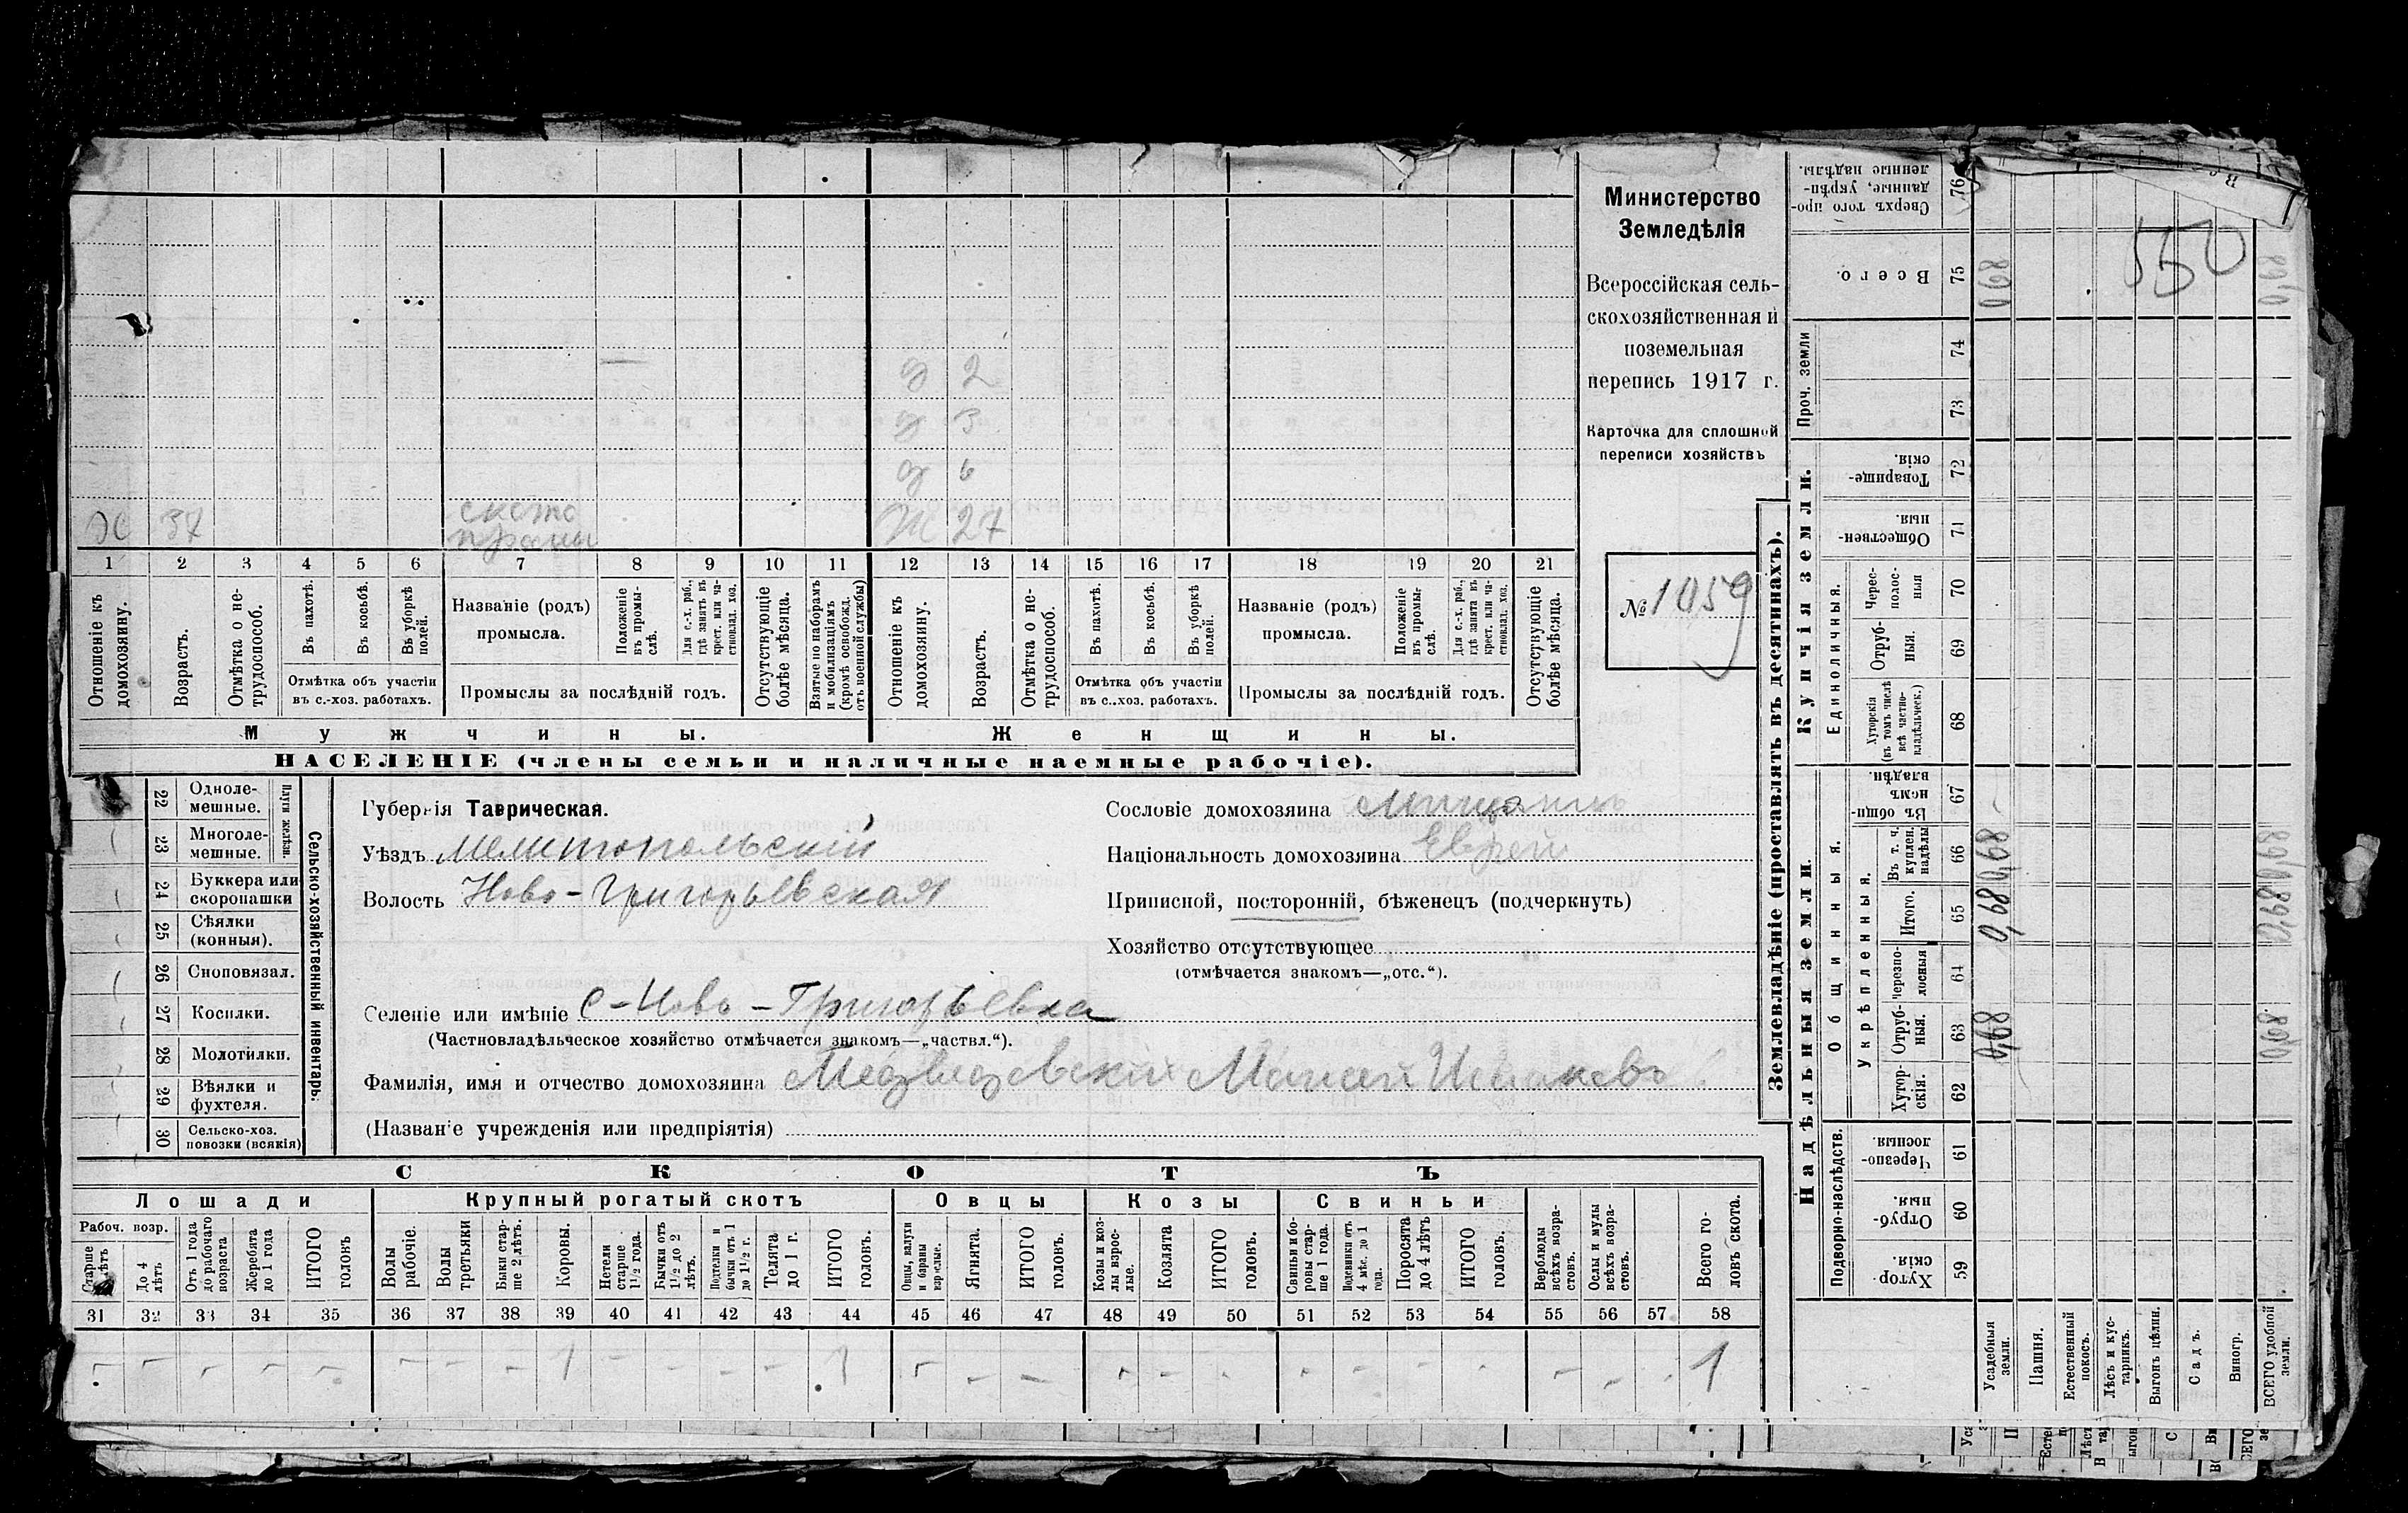 Министерство
Земледѣлія
Всероссійская сель-
скохозяйственная и
поземельная
перепись 1917 г.
Карточка для сплошной
переписи хозяйствъ
№ 1059
550
д 2
д 3
д 6
Ж 27
37
ското
1 2 3 4 5 6 7 8 9 10 11 12 13 14 15 16 17 18 19 20 21
Отношеніе къ домохозяину.
Возрастъ.
Отмѣтка о не-трудоспособ.
Въ пахотѣ.
Въ косьбѣ.
Въ уборкѣ полей.
Отмѣтка объ участіи
въ с.-хоз. работахъ.
Названіе (родъ)
промысла.
Положеніе въ промы-слѣ.
Для с.-х. раб., гдѣ занятъ въ крест. или ча-стновлад. хоз.
Промыслы за послѣдній годъ.
Отсутствующіе болѣе мѣсяца.
Взятые по наборамъ и мобилизаціямъ (кромѣ освобожд. отъ военной службы)
Отношеніе къ домохозяину.
Возрастъ.
Отмѣтка о не-трудоспособ.
Въ пахотѣ.
Въ косьбѣ.
Въ уборкѣ полей.
Отмѣтка объ участіи
въ с.-хоз. работахъ.
Названіе (родъ)
промысла.
Положеніе въ промы-слѣ.
Для с.-х. раб., гдѣ занята въ крест. или ча-стновлад. хоз.
Промыслы за послѣдній годъ.
Отсутствующіе болѣе мѣсяца.
Мужчины.
Женщины.
НАСЕЛЕНІЕ (члены семьи и наличные наемные рабочіе).
Сельско-хозяйственный инвентарь.
Плуги желѣзн.
22 Одноле-мешные.
23 Многоле-мешные.
24 Буккера или скоропашки
25 Сѣялки (конныя).
26 Сноповязал.
27 Косилки.
28 Молотилки.
29 Вѣялки и фухтеля.
30 Сельско-хоз. повозки (всякія)
Губернія Таврическая.
Уѣздъ Мелитопольскій
Волость Ново-Григорьевская
Сословіе домохозяина Мѣщанинъ
Національность домохозяина Еврей
Приписной, посторонній, бѣженецъ (подчеркнуть)
Хозяйство отсутствующее
(отмѣчается знакомъ—„отс.“).
Селеніе или имѣніе с-Ново-Григорьевка
(Частновладѣльческое хозяйство отмѣчается знакомъ—„частвл.“).
Фамилія, имя и отчество домохозяина Медведовскій Моисей Исааковъ
(Названіе учрежденія или предпріятія)
СКОТЪ
Лошади
Крупный рогатый скотъ
Овцы
Козы
Свиньи
Рабоч. возр.
Старше лѣтъ
До 4 лѣтъ
Отъ 1 года до рабочаго возраста
Жеребята до 1 года
ИТОГО головъ
Волы рабочіе.
Волы третьяки
Быки стар-ше 2 лѣтъ.
Коровы.
Нетели старше 1½ года.
Бычки отъ 1½ до 2 лѣтъ.
Подтелки и бычки отъ 1 до 1½ г.
Телята до 1 г.
ИТОГО головъ.
Овцы, валухи и бараны взрослые.
Ягнята.
ИТОГО головъ.
Козы и коз-лы взрос-лые.
Козлята
ИТОГО головъ.
Свиньи и бо-ровы стар-ше 1 года.
Подсвинки отъ 4 мѣс. до 1 года.
Поросята до 4 лѣтъ
ИТОГО головъ.
Верблюды всѣхъ возра-стовъ.
Ослы и мулы всѣхъ возра-стовъ.
Всего го-ловъ скота.
31 32 33 34 35 36 37 38 39 40 41 42 43 44 45 46 47 48 49 50 51 52 53 54 55 56 57 58
- - - - - - - - 1 - - - - 1 - - - - - - - - - - - 1
Землевладѣніе (проставлять въ десятинахъ).
Сверхъ того про-данные, укрѣп-ленные надѣлы. 76
Всего. 75 0,68
Проч. земли 74
73
Купчія земли.
Товарище-скія. 72
Обществен-ныя. 71
Единоличныя.
Черес-полос-ныя 70
Отруб-ныя. 69
Хуторскія (въ томъ числѣ всѣ частно-владѣльческ.) 68
Надѣльныя земли.
Общинныя.
Въ общи-номъ владѣн. 67
Укрѣпленныя.
Въ т. ч. куплен. надѣлы 66 0,68
Итого. 65 0,68
Черезпо-лосныя 64
Отруб-ныя. 63 0,68
Хутор-скія. 62
Подворно-наслѣдств.
Черезпо-лосныя 61
Отруб-ныя. 60
Хутор-скія. 59
Усадебныя земли.
Пашня.
Естественный покосъ.
Лѣсъ и кус-тарникъ.
Выгонъ цѣлин.
Садъ.
Виногр.
ВСЕГО удобной земли.
0,68
0,68
0,68
0,68